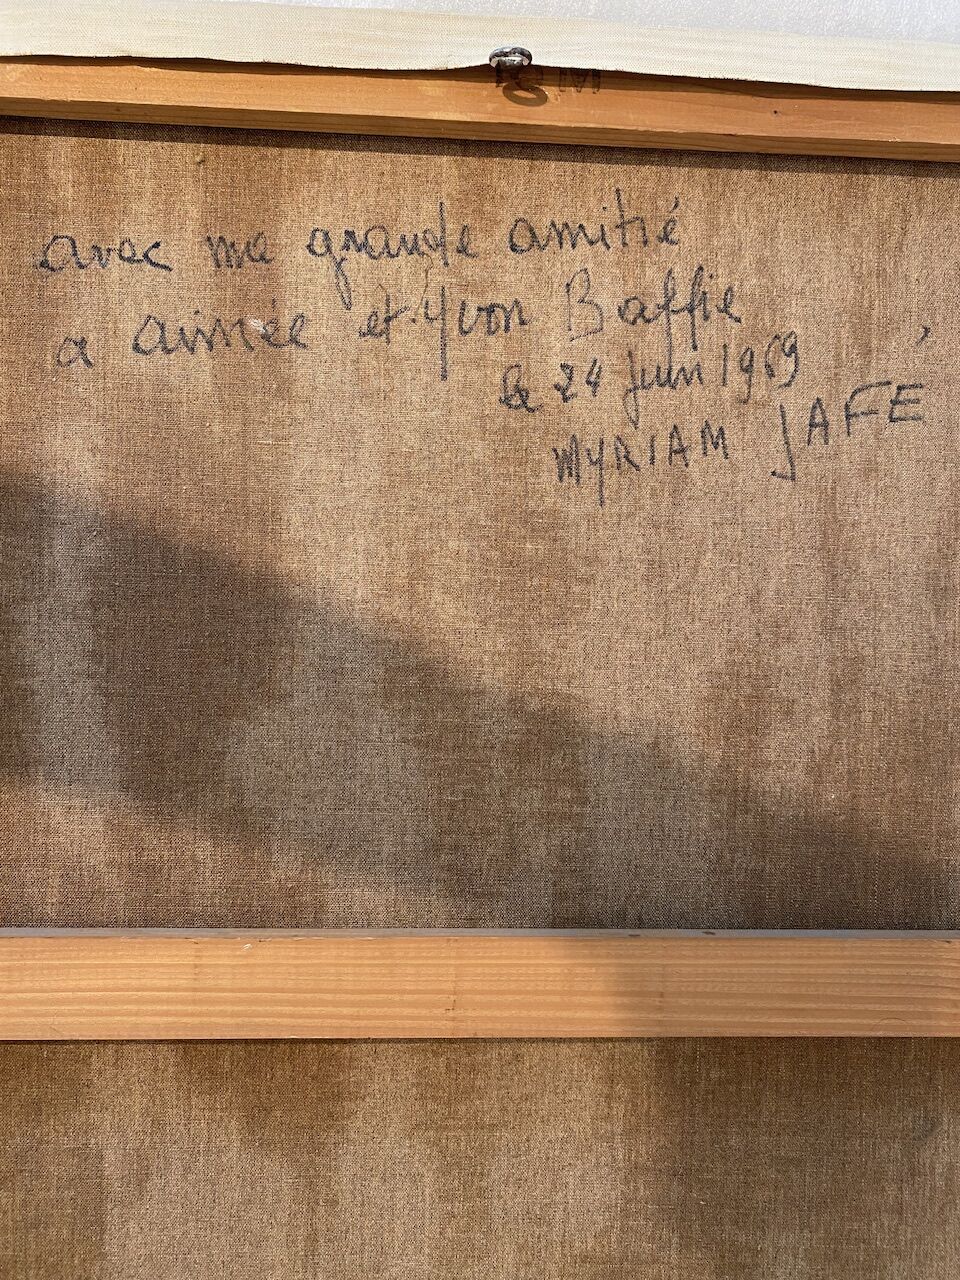 avec ma grande amitié
a aimée et Yvon Baffie
le 24 juin 1969
MYRIAM JAFÉ